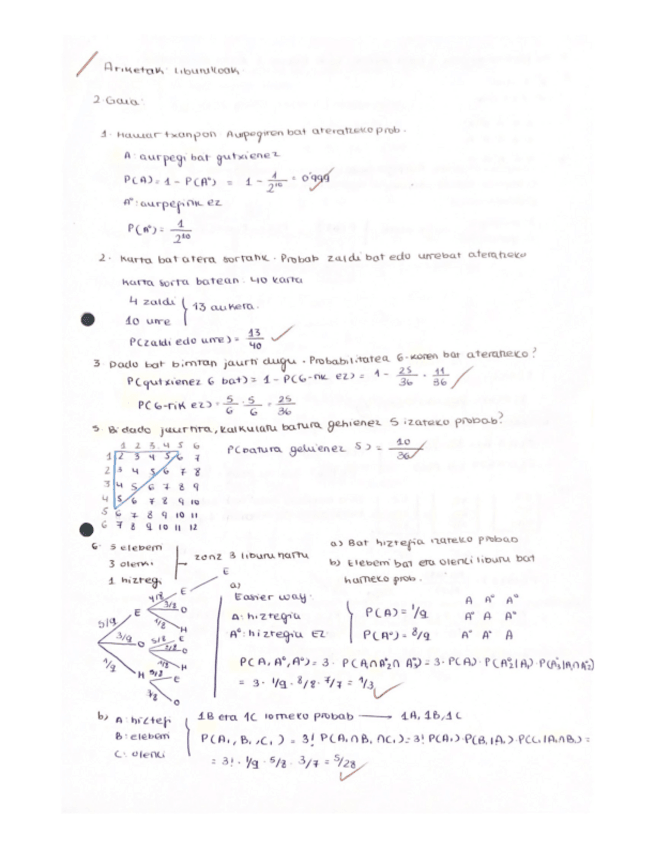 Ariketak liburukoak
2. Gaia:
1. Hamar txanpon. Aurpegiren bat ateratzeko prob.
A: aurpegi bat gutxienez
P(A) = 1 - P(Aᶜ) = 1 - 1/2¹⁰ = 0'999
Aᶜ: aurpegirik ez
P(Aᶜ) = 1/2¹⁰
2. Karta bat atera sortatik. Probab zaldi bat edo urre bat ateratzeko
Karta sorta batean: 40 karta
4 zaldi
10 urre } 13 aukera.
P(zaldi edo urre) = 13/40
3 Dado bat bimtan jaurti dugu. Probabilitatea 6-koren bat ateratzeko?
P(gutxienez 6 bat) = 1 - P(6-rik ez) = 1 - 25/36 = 11/36
P(6-rik ez) = 5/6 · 5/6 = 25/36
5 Bi dado jaurtita, kalkulatu batura gehienez 5 izateko probab?
1 2 3 4 5 6
1 2 3 4 5 6 7
2 3 4 5 6 7 8
3 4 5 6 7 8 9
4 5 6 7 8 9 10
5 6 7 8 9 10 11
6 7 8 9 10 11 12
P(batura gehienez 5) = 10/36
6. 5 eleberri
3 olerki
1 hiztegi
zoriz 3 liburu hartu
a) Bat hiztegia izateko probab
b) Eleberri bat eta olerki liburu bat
hartzeko prob.
5/9 E
3/9 O
1/9 H
4/8 E
3/8 O
1/8 H
5/8 E
2/8 O
1/8 H
5/8 E
3/8 O
E
a)
Easier way:
A: hiztegia
Aᶜ: hiztegia EZ
P(A) = 1/9
P(Aᶜ) = 8/9
A Aᶜ Aᶜ
Aᶜ A Aᶜ
Aᶜ Aᶜ A
P(A, Aᶜ, Aᶜ) = 3 · P(A∩A₂ᶜ∩A₃ᶜ) = 3 · P(A) · P(A₂ᶜ|A₁) · P(A₃ᶜ|A₁∩A₂ᶜ)
= 3 · 1/9 · 8/8 · 7/7 = 1/3
b) A: hiztegi
B: eleberri
C: olerki
1B eta 1C lortzeko probab → 1A, 1B, 1C
P(A₁, B₁, C₁) = 3! P(A₁∩B₁∩C₁) = 3! P(A₁) · P(B₁|A₁) · P(C₁|A₁∩B₁) =
= 3! · 1/9 · 5/8 · 3/7 = 5/28